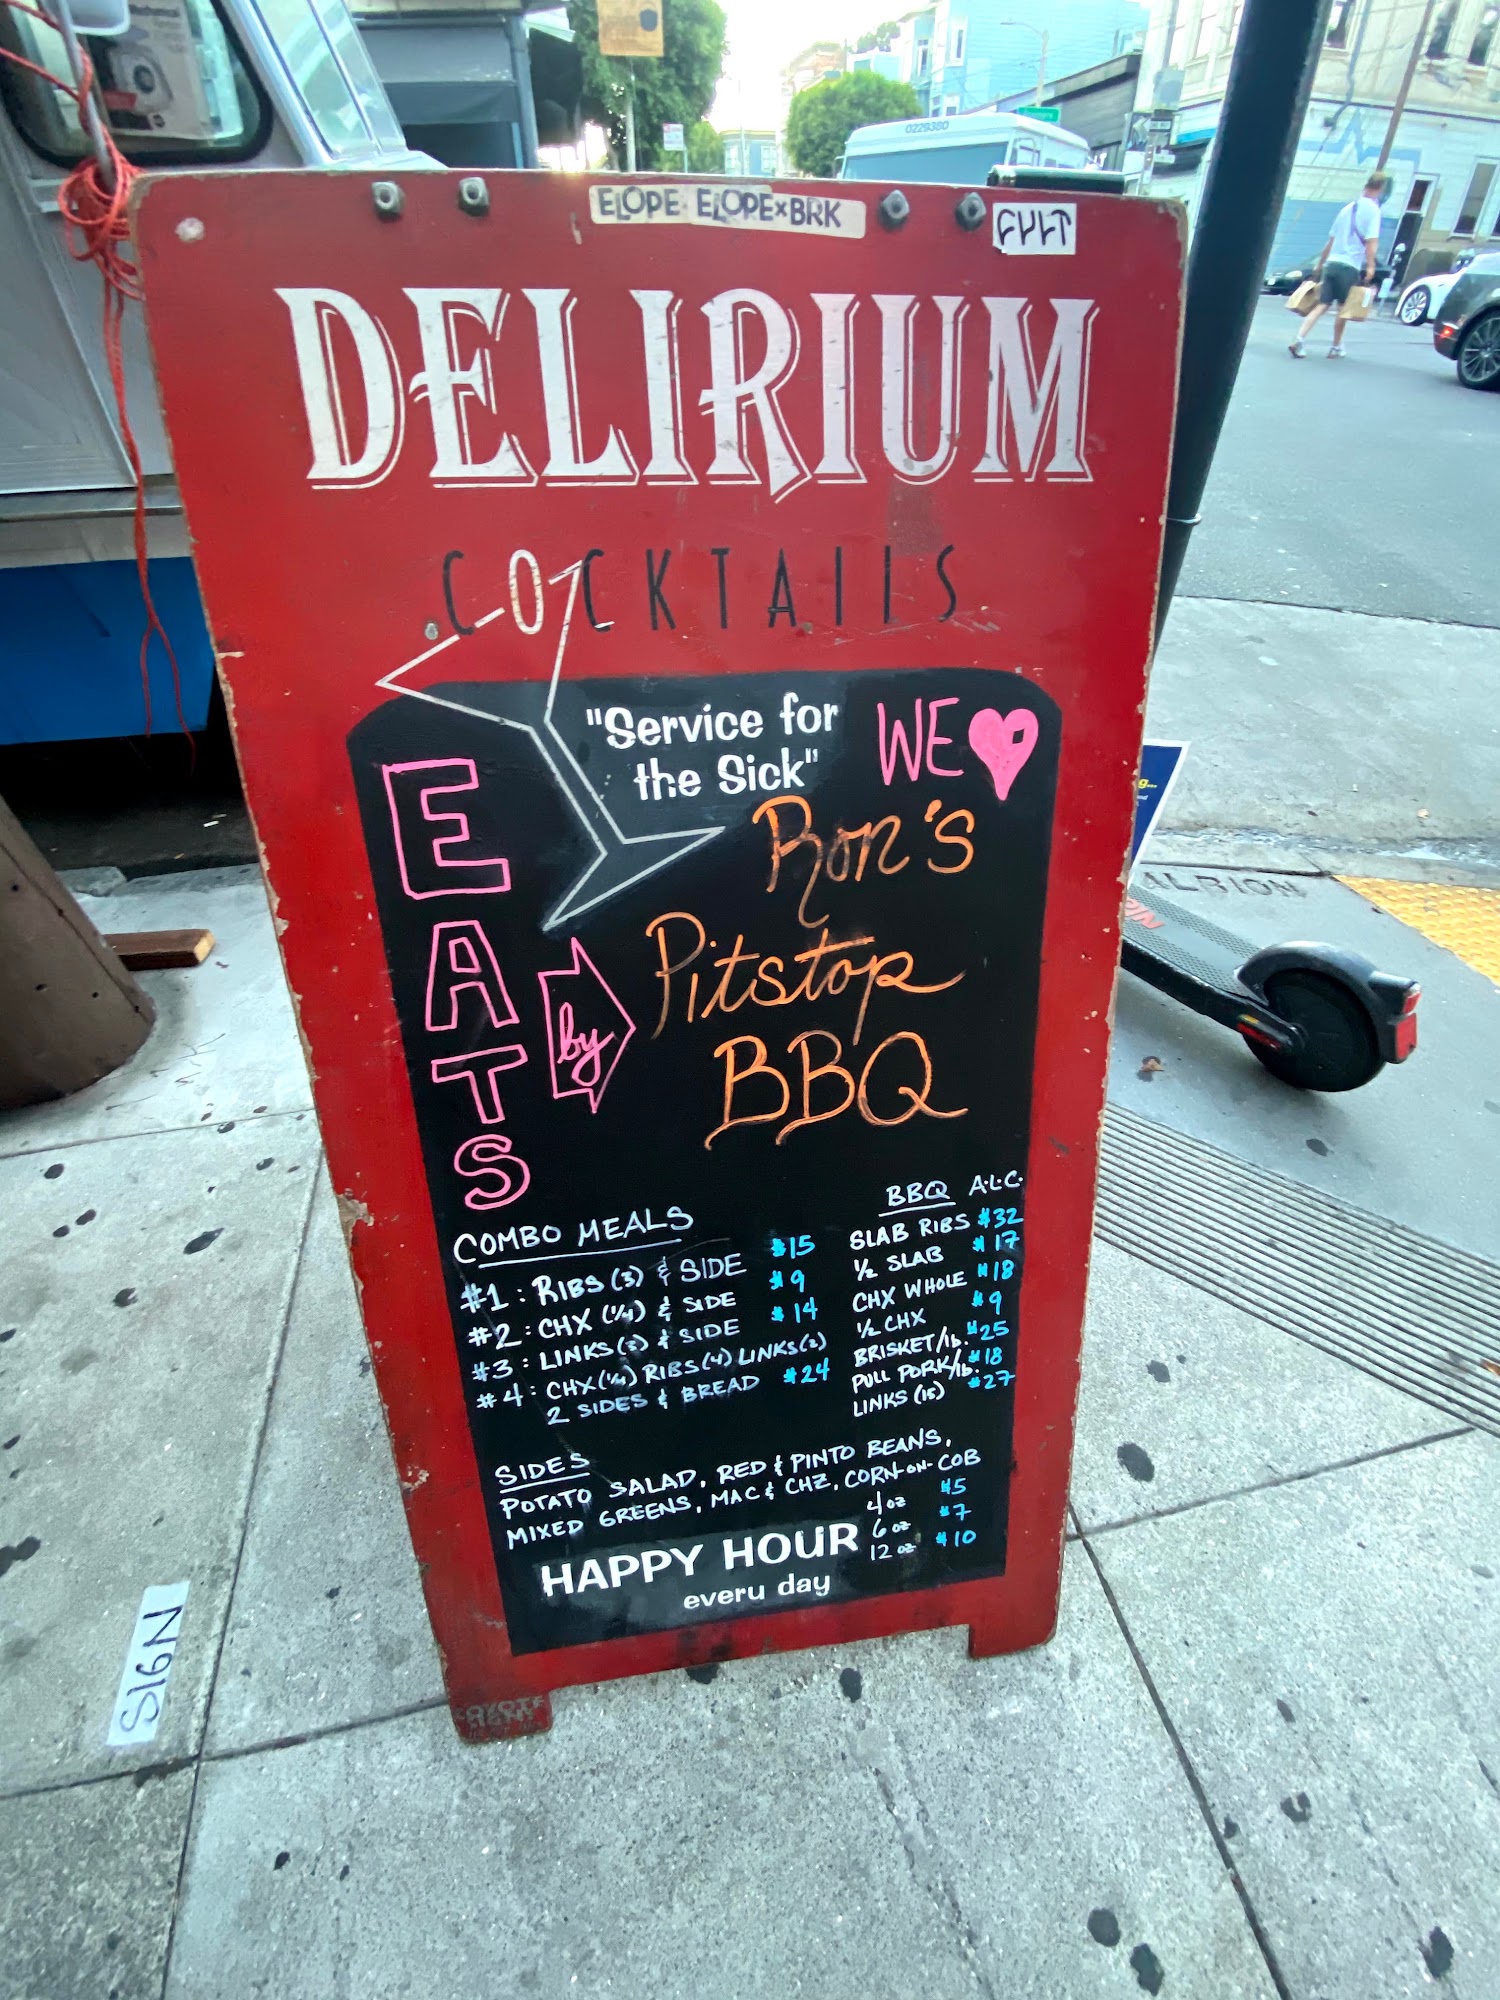 0229380
ELOPE ELOPE×BRK
CVLT
DELIRIUM
COCKTAILS
"Service for
the Sick"
WE
Ron's
Pitstop
BBQ
EATS
by
COMBO MEALS
#1: RIBS (3) & SIDE $15
#2: CHX (1/4) & SIDE $9
#3: LINKS (3) & SIDE $14
#4: CHX (1/4) RIBS (4) LINKS (2)
2 SIDES & BREAD $24
BBQ A.L.C.
SLAB RIBS $32
1/2 SLAB $17
CHX WHOLE $18
1/2 CHX $9
BRISKET/lb. $25
PULL PORK/lb. $18
LINKS (15) $27
SIDES
POTATO SALAD, RED & PINTO BEANS,
MIXED GREENS, MAC & CHZ, CORN-ON-COB
4 oz $5
6 oz $7
12 oz $10
HAPPY HOUR
everu day
ALBION
SIGN